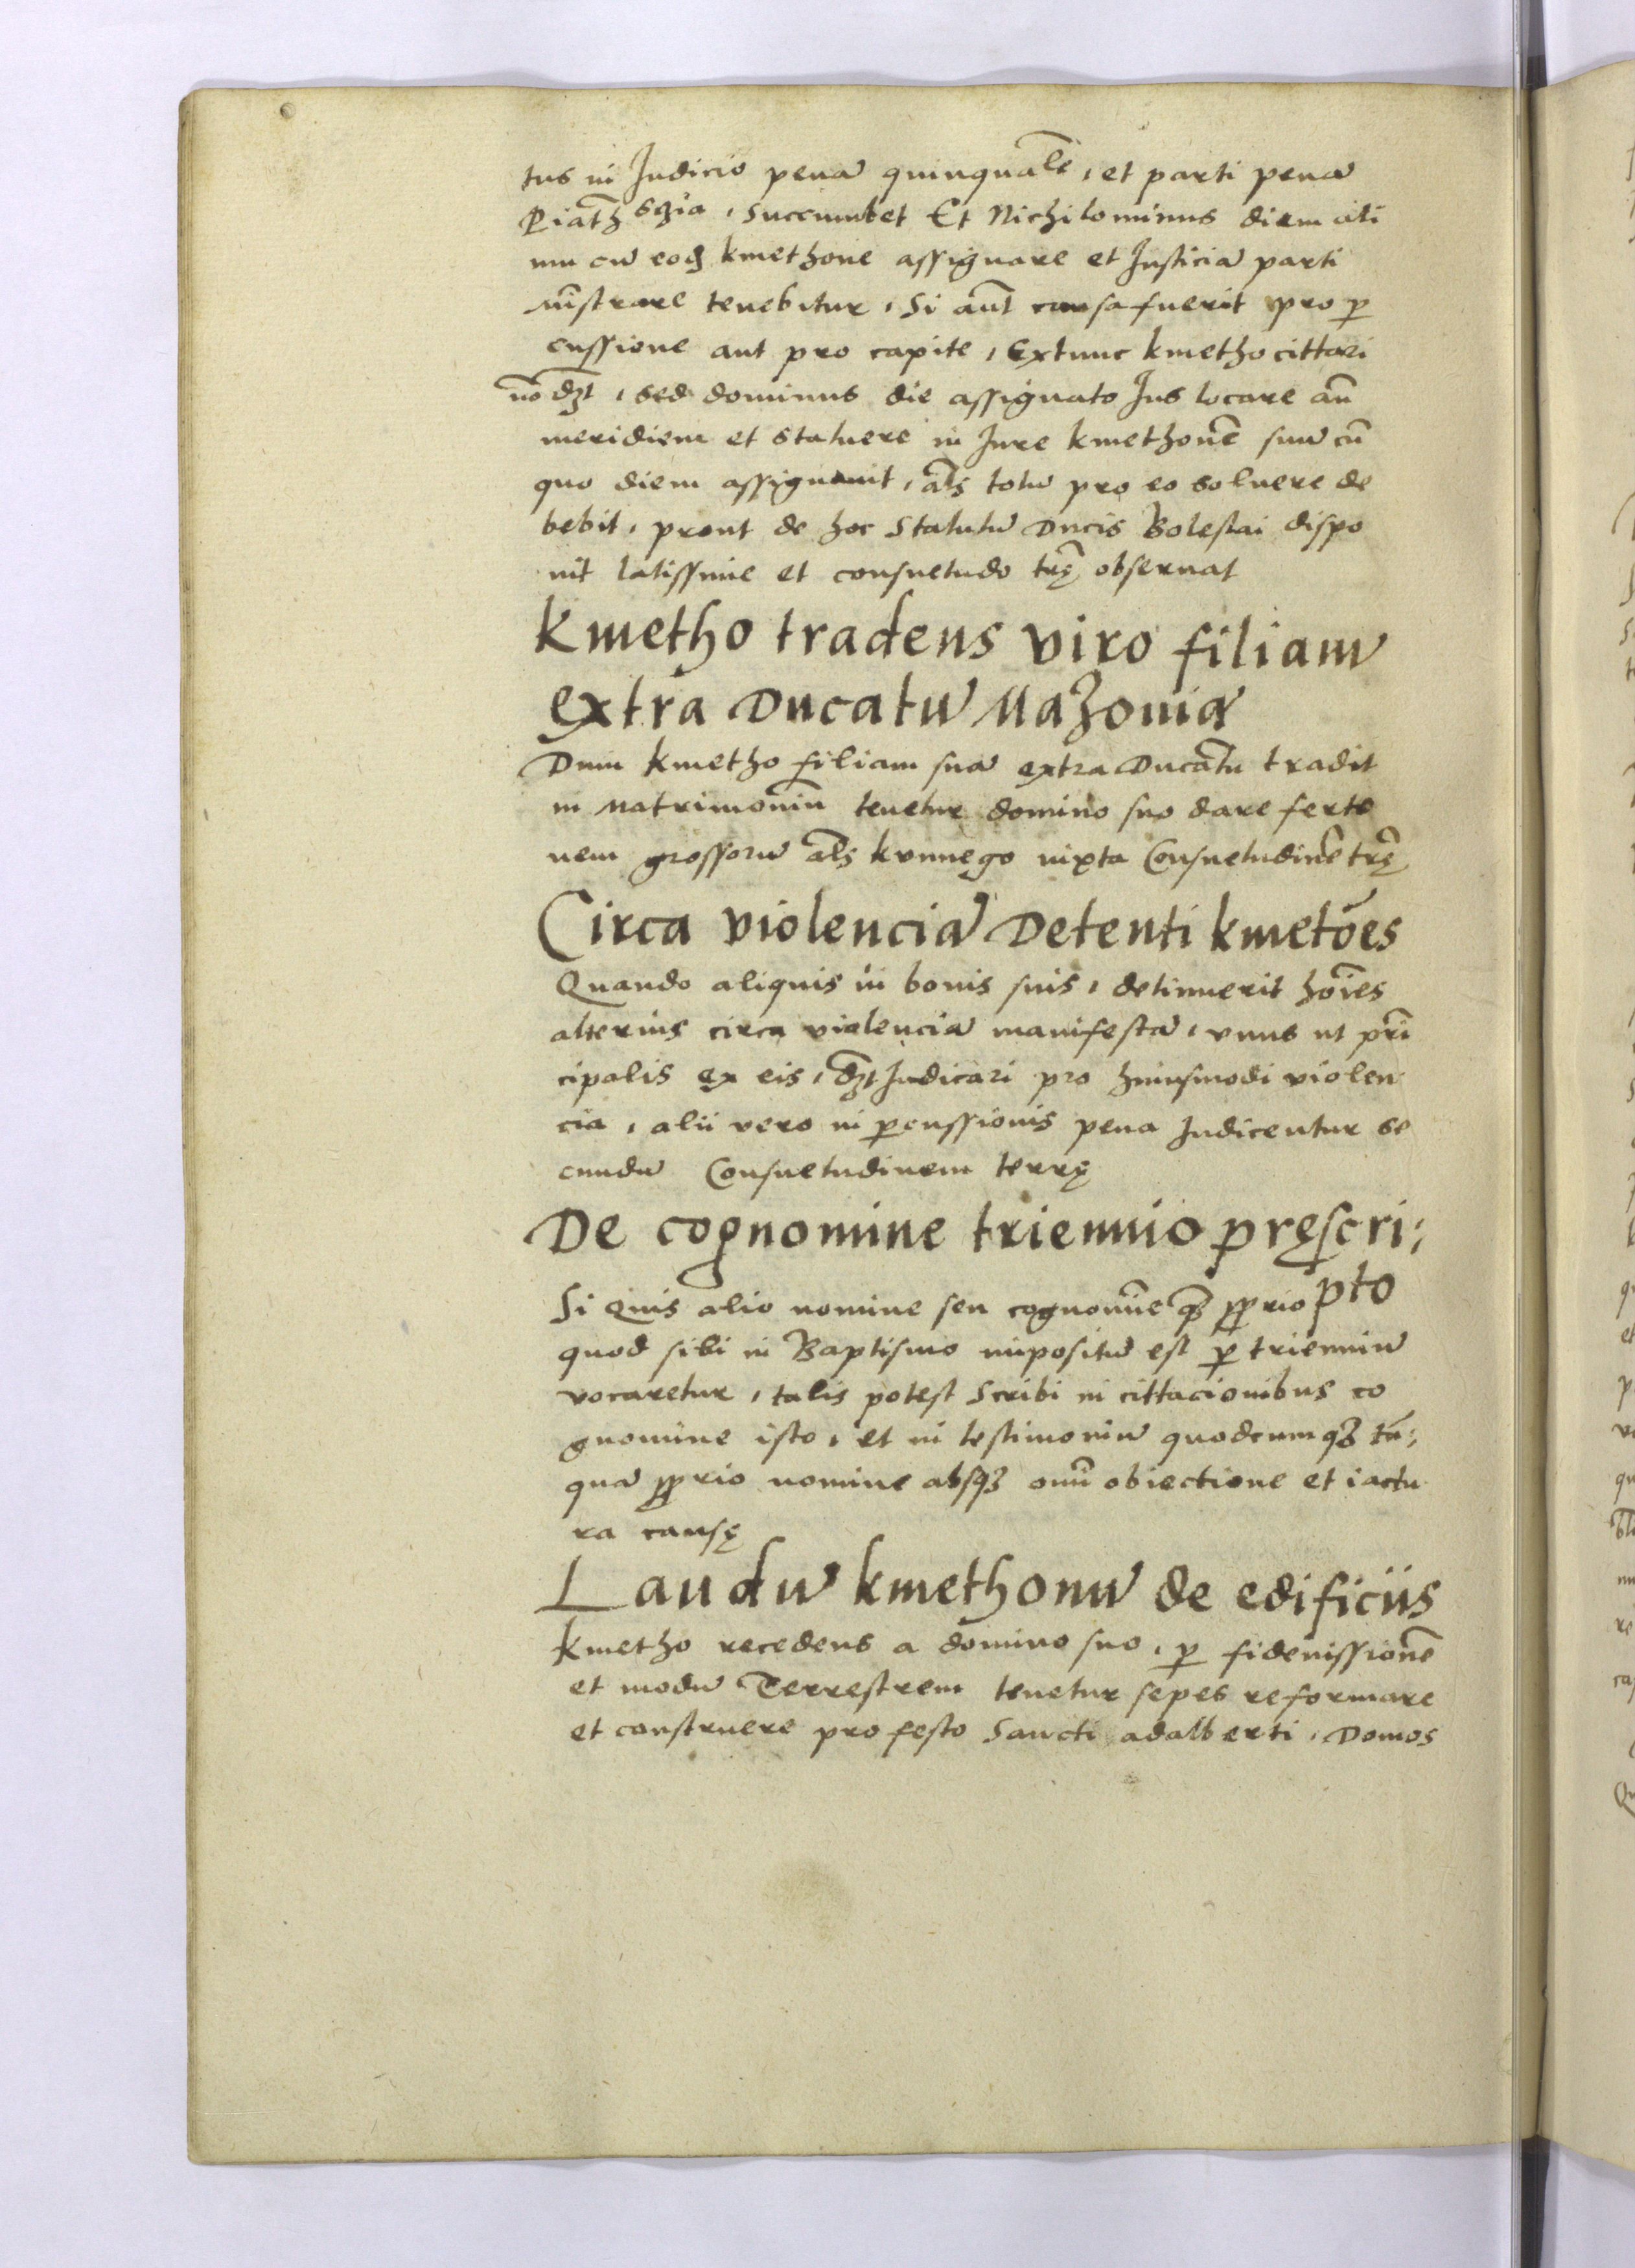 tus in Judicio penā quinquałe, et parti penā
Piątħ sżia, succumbet Et Nichilominus diem ali
um cū eodȝ kmethone assignare et Justiciā parti
mīstrare tenebitur, Si aūt causa fuerit pro ꝑ
cussione aut pro capite, Extunc kmetho cittari
nō dȝt, sed dominus die assignato Jus locare añ
meridiem et statuere in Jure kmethonē suū cū
quo diem assignauit, als totū pro eo soluere de
bebit, prout de hoc Statutū Ducis Boleslai dispo
nit latissime et consuetudo trę obseruat
Kmetho tradens viro filiam
extra Ducatū Mazouiæ
Dum kmetho filiam suā extra Ducatū tradit
in Matrimoniū tenetur domino suo dare ferto
nem grossorū als kunnego iuxta Consuetudinē trę
Circa violenciā Detenti kmetōes
Quando aliquis in bonis suis, detinuerit hoīes
alterius circa violenciā manifestā, vnus ut pri
cipalis ex eis, dȝt Judicari pro huiusmodi violen
cia, alii vero in ꝑcussionis pena Judicentur se
cundū Consuetudinem terrę
De cognomine triennio pręscri:
pto
Si Quis alio nomine seu cognomīe qȝ ꝓprio
quod sibi in Baptismo impositū est ꝑ trienniū
vocaretur, talis potest Scribi in cittacionibus co
gnomine isto, et in testimoniū quodcumqȝ tā:
quā ꝓprio nomine absqȝ omī obiectione et iactu
ra causę
Laudū kmethonū de edificiis
Kmetho recedens a domino suo, ꝑ fideiussionē
et modū Terrestrem tenetur sepes reformare
et construere pro festo Sancti adalberti, Domos